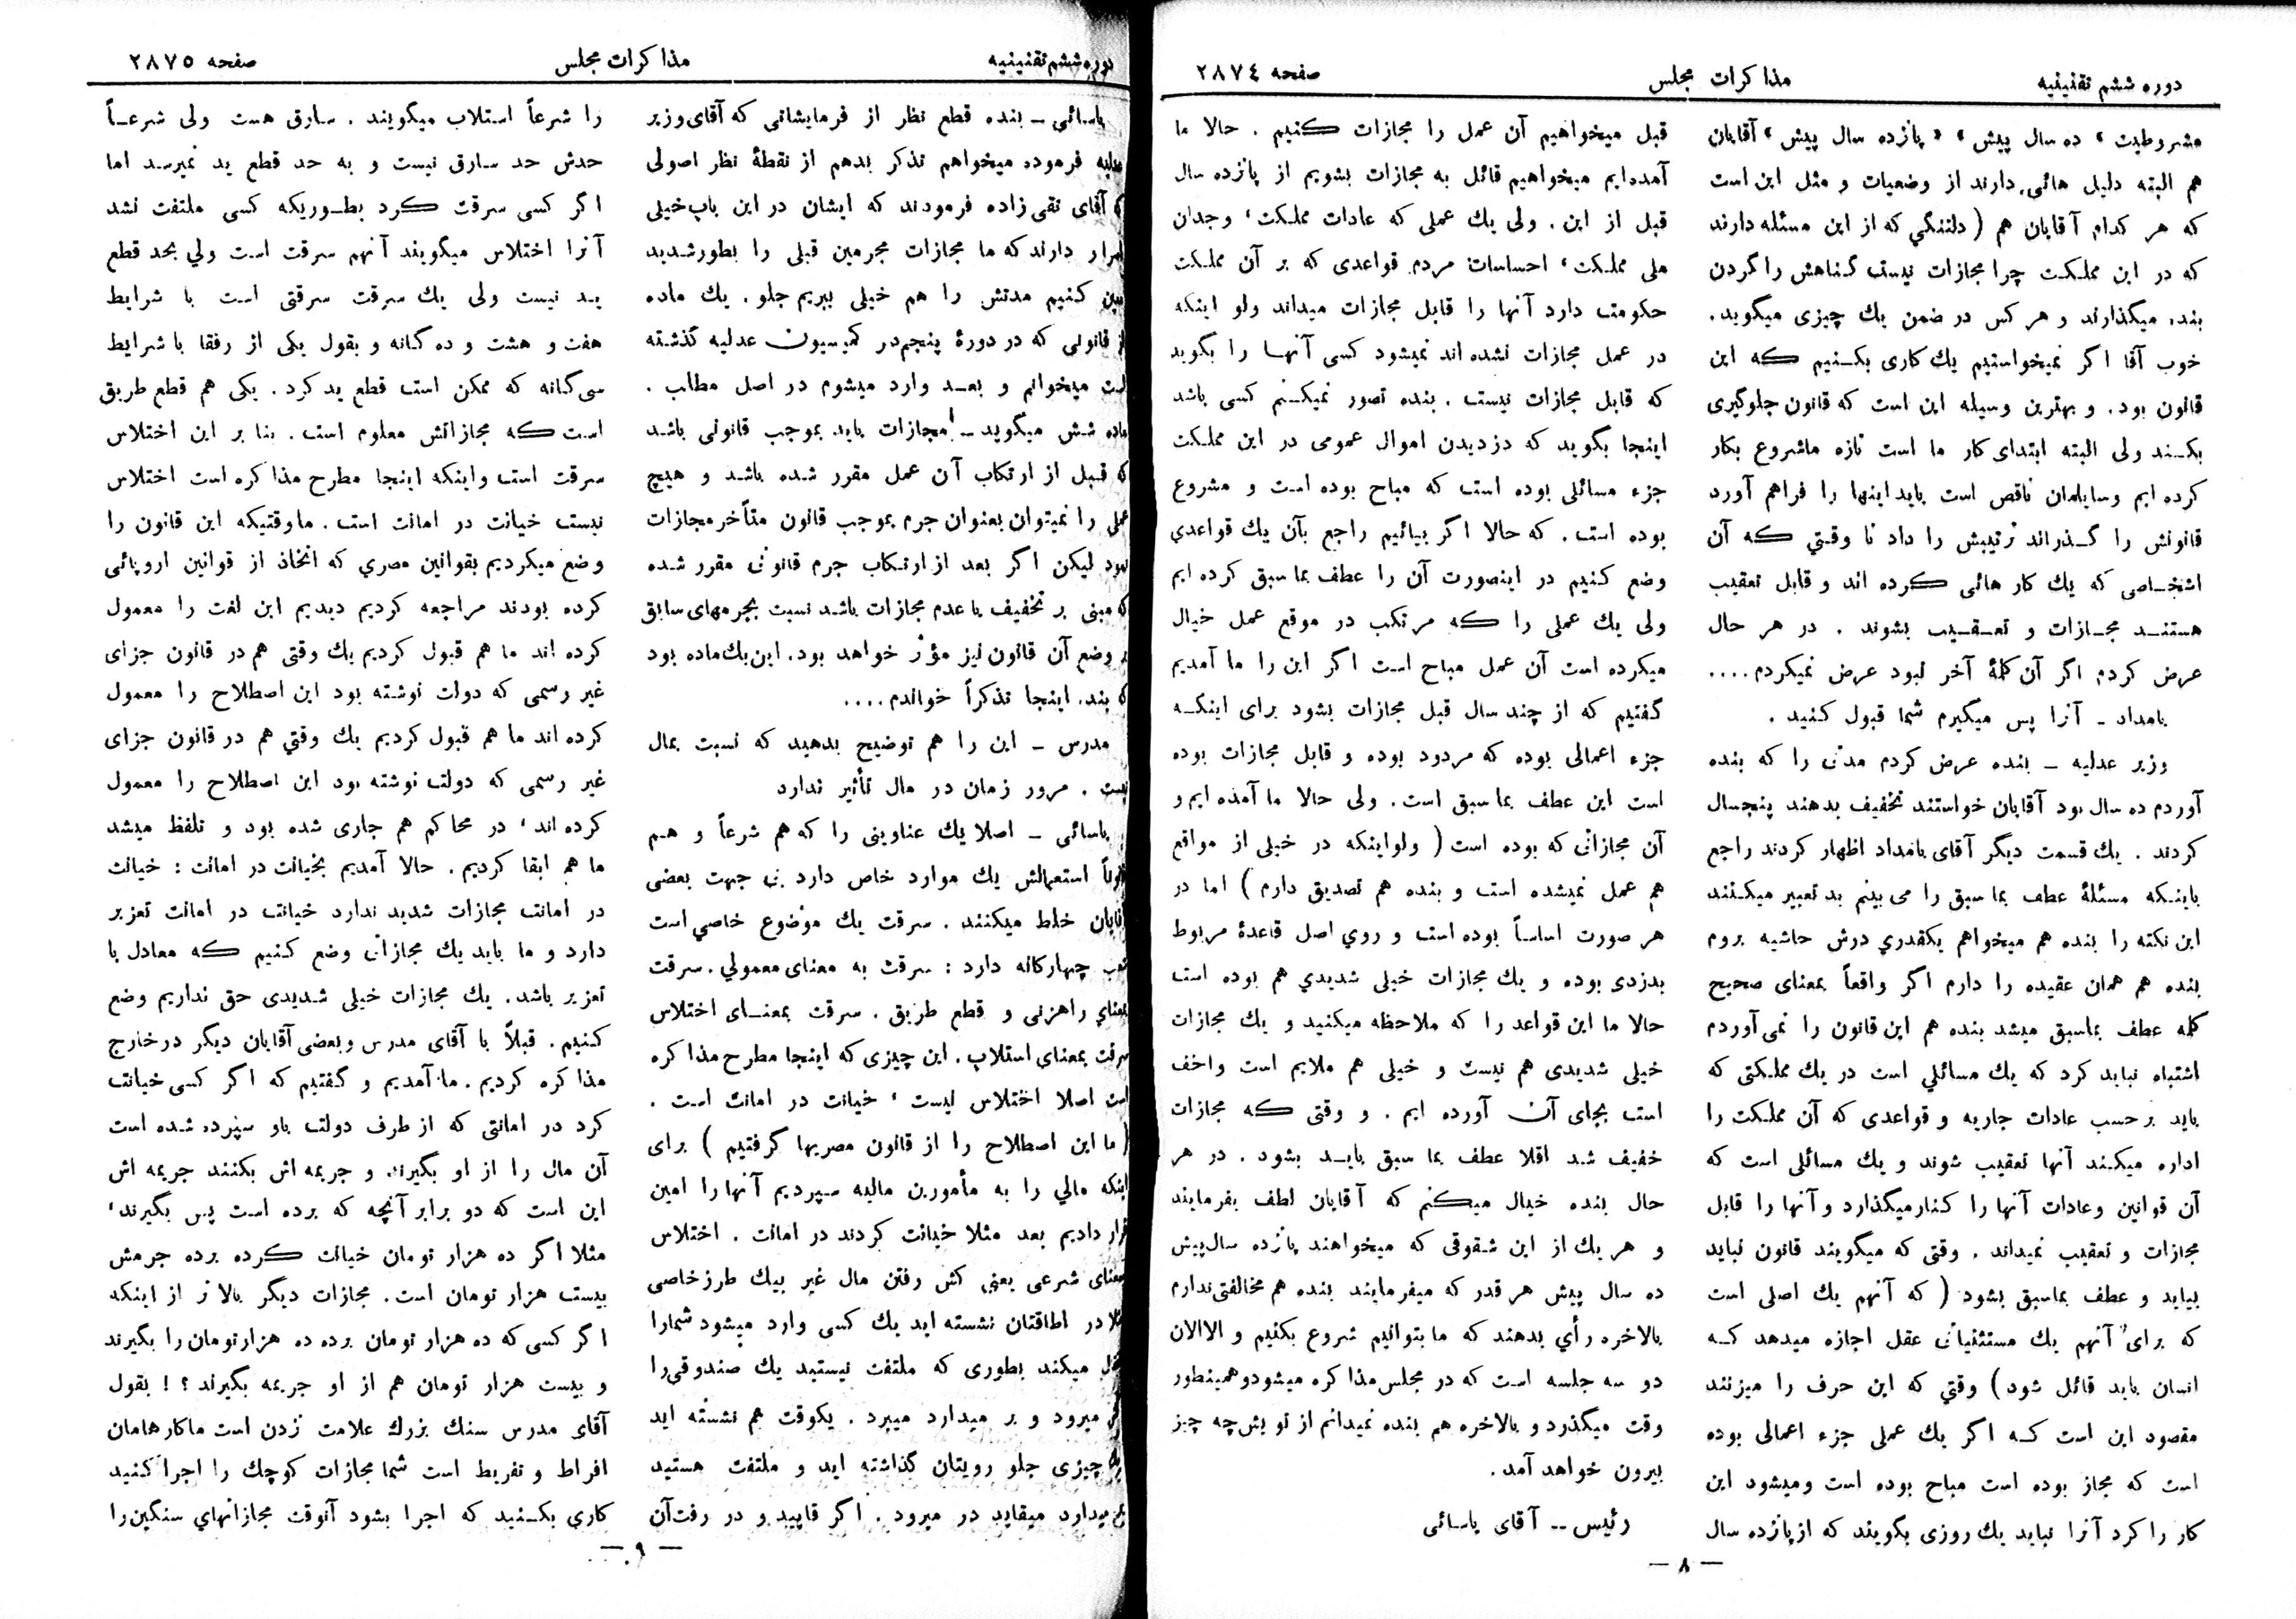 دوره ششم تقنینیه
مذاکرات مجلس
صفحه ۲۸۷٤
مشروطیت، ده سال پیش، « پانزده سال پیش، آقایان
هم البته دلیل هائی دارند از وضعیات و مثل این است
که هر کدام آقایان هم ( دلتنگی که از این مسئله دارند
که در این مملکت چرا مجازات نیست گناهش را گردن
بنده میگذارند و هر کس در ضمن یك چیزی میگوید.
خوب آقا اگر نمیخواستیم یك کاری بکنیم که این
قانون بود. و بهترین وسیله این است که قانون جلوگیری
بکند ولی البته ابتدای کار ما است تازه ماشروع بکار
کرده ایم وسایلمان ناقص است باید اینها را فراهم آورد
قانونش را گذراند ترتیبش را داد تا وقتی که آن
اشخاصی که یك کار هائی کرده اند و قابل تعقیب
هستند مجازات و تعقیب بشوند . در هر حال
عرض کردم اگر آن کلمهٔ آخر نبود عرض نمیکردم....
بامداد ـ آنرا پس میگیرم شما قبول کنید .
وزیر عدلیه ـ بنده عرض کردم مدتی را که بنده
آوردم ده سال بود آقایان خواستند تخفیف بدهند پنجسال
کردند . یك قسمت دیگر آقای بامداد اظهار کردند راجع
باینکه مسئلهٔ عطف بما سبق را می بینم بد تعبیر میکنند
این نکته را بنده هم میخواهم یکقدری درش حاشیه بروم
بنده هم همان عقیده را دارم اگر واقعاً بمعنای صحیح
کلمه عطف بماسبق میشد بنده هم این قانون را نمی آوردم
اشتباه نباید کرد که یك مسائلی است در یك مملکتی که
باید بر حسب عادات جاریه و قواعدی که آن مملکت را
اداره میکند آنها تعقیب شوند و یك مسائلی است که
آن قوانین و عادات آنها را کنار میگذارد و آنها را قابل
مجازات و تعقیب نمیداند . وقتی که میگویند قانون نباید
بیاید و عطف بماسبق بشود ( که آنهم یك اصلی است
که برای آنهم یك مستثنیاتی عقل اجازه میدهد که
انسان باید قائل شود ) وقتی که این حرف را میزنند
مقصود این است که اگر یك عملی جزء اعمالی بوده
است که مجاز بوده است مباح بوده است و میشود این
کار را کرد آنرا نباید یك روزی بگویند که از پانزده سال
قبل میخواهیم آن عمل را مجازات کنیم . حالا ما
آمده ایم میخواهیم قائل به مجازات بشویم از پانزده سال
قبل از این . ولی یك عملی که عادات مملکت، وجدان
ملی مملکت، احساسات مردم قواعدی که بر آن مملکت
حکومت دارد آنها را قابل مجازات میداند ولو اینکه
در عمل مجازات نشده اند نمیشود کسی آنها را بگوید
که قابل مجازات نیست . بنده تصور نمیکنم کسی باشد
اینجا بگوید که دزدیدن اموال عمومی در این مملکت
جزء مسائلی بوده است که مباح بوده است و مشروع
بوده است . که حالا اگر بیائیم راجع بآن یك قواعدی
وضع کنیم در اینصورت آن را عطف بماسبق کرده ایم
ولی یك عملی را که مرتکب در موقع عمل خیال
میکرده است آن عمل مباح است اگر این را ما آمدیم
گفتیم که از چند سال قبل مجازات بشود برای اینکه
جزء اعمالی بوده که مردود بوده و قابل مجازات بوده
است این عطف بماسبق است . ولی حالا ما آمده ایم و
آن مجازاتی که بوده است ( ولو اینکه در خیلی از مواقع
هم عمل نمیشده است و بنده هم تصدیق دارم ) اما در
هر صورت اساساً بوده است و روی اصل قاعدهٔ مربوط
بدزدی بوده و یك مجازات خیلی شدیدی هم بوده است
حالا ما این قواعد را که ملاحظه میکنید و یك مجازات
خیلی شدیدی هم نیست و خیلی هم ملایم است و اخف
است بجای آن آورده ایم . و وقتی که مجازات
خفیف شد اقلا عطف بما سبق باید بشود . در هر
حال بنده خیال میکنم که آقایان لطف بفرمایند
و هر یك از این شقوقی که میخواهند پانزده سال پیش
ده سال پیش هر قدر که میفرمایند بنده هم مخالفتی ندارم
بالاخره رأی بدهند که ما بتوانیم شروع بکنیم و الا الان
دو سه جلسه است که در مجلس مذاکره میشود و همینطور
وقت میگذرد و بالاخره هم بنده نمیدانم از تویش چه چیز
بیرون خواهد آمد .
رئیس -- آقای یاسائی
ـ ۸ ـ
دوره ششم تقنینیه
مذاکرات مجلس
صفحه ۲۸۷۵
یاسائی ـ بنده قطع نظر از فرمایشاتی که آقای وزیر
عدلیه فرموده میخواهم تذکر بدهم از نقطهٔ نظر اصولی
که آقای تقی زاده فرمودند که ایشان در این باب خیلی
اصرار دارند که ما مجازات مجرمین قبلی را بطور شدید
کنیم مدتش را هم خیلی ببریم جلو . یك ماده
از قانونی که در دورهٔ پنجم در کمیسیون عدلیه گذشته
است میخوانم و بعد وارد میشوم در اصل مطالب .
ماده شش میگوید ـ مجازات باید بموجب قانونی باشد
که قبل از ارتکاب آن عمل مقرر شده باشد و هیچ
عملی را نمیتوان بعنوان جرم بموجب قانون متأخر مجازات
نمود لیکن اگر بعد از ارتکاب جرم قانونی مقرر شده
که مبنی بر تخفیف یا عدم مجازات باشد نسبت بجرمهای سابق
بر وضع آن قانون نیز مؤثر خواهد بود . این یك ماده بود
که بنده اینجا تذکراً خواندم ....
مدرس ـ این را هم توضیح بدهید که نسبت بمال
نیست . مرور زمان در مال تأثیر ندارد
یاسائی ـ اصلا یك عناوینی را که هم شرعاً و هم
قانوناً استعمالش یك موارد خاص دارد بی جهت بعضی
آقایان خلط میکنند . سرقت یك موضوع خاصی است
چهارگانه دارد : سرقت به معنای معمولی . سرقت
بمعنای راهزنی و قطع طریق . سرقت بمعنای اختلاس
سرقت بمعنای استلاب . این چیزی که اینجا مطرح مذاکره
است اصلا اختلاس نیست ، خیانت در امانت است .
( ما این اصطلاح را از قانون مصریها گرفتیم ) برای
اینکه مالی را به مأمورین مالیه سپردیم آنها را امین
قرار دادیم بعد مثلا خیانت کردند در امانت . اختلاس
بمعنای شرعی یعنی کش رفتن مال غیر بیك طرز خاصی
مثلا در اطاقتان نشسته اید یك کسی وارد میشود شما را
میکند بطوری که ملتفت نیستید یك صندوقی را
میرود و بر میدارد میبرد . یکوقت هم نشسته اید
یك چیزی جلو رویتان گذاشته اید و ملتفت هستید
میدارد میقاپد در میرود . اگر قاپید و در رفت آن
را شرعاً استلاب میگویند . سارق هست ولی شرعاً
حدش حد سارق نیست و به حد قطع ید نمیرسد اما
اگر کسی سرقت کرد بطوریکه کسی ملتفت نشد
آنرا اختلاس میگویند آنهم سرقت است ولی بحد قطع
ید نیست ولی یك سرقت سرقتی است با شرایط
هفت و هشت و ده گانه و بقول یکی از رفقا با شرایط
سی گانه که ممکن است قطع ید کرد . یکی هم قطع طریق
است که مجازاتش معلوم است . بنا بر این اختلاس
سرقت است و اینکه اینجا مطرح مذاکره است اختلاس
نیست خیانت در امانت است . ما وقتیکه این قانون را
وضع میکردیم بقوانین مصری که اتخاذ از قوانین اروپائی
کرده بودند مراجعه کردیم دیدیم این لغت را معمول
کرده اند ما هم قبول کردیم یك وقتی هم در قانون جزای
غیر رسمی که دولت نوشته بود این اصطلاح را معمول
کرده اند ما هم قبول کردیم یك وقتی هم در قانون جزای
غیر رسمی که دولت نوشته بود این اصطلاح را معمول
کرده اند ، در محاکم هم جاری شده بود و تلفظ میشد
ما هم ابقا کردیم . حالا آمدیم بخیانت در امانت : خیانت
در امانت مجازات شدید ندارد خیانت در امانت تعزیر
دارد و ما باید یك مجازاتی وضع کنیم که معادل با
تعزیر باشد . یك مجازات خیلی شدیدی حق نداریم وضع
کنیم . قبلاً با آقای مدرس و بعضی آقایان دیگر در خارج
مذاکره کردیم . ما آمدیم و گفتیم که اگر کسی خیانت
کرد در امانتی که از طرف دولت باو سپرده شده است
آن مال را از او بگیرند و جریمه اش بکنند جریمه اش
این است که دو برابر آنچه که برده است پس بگیرند ،
مثلا اگر ده هزار تومان خیانت کرده برده جرمش
بیست هزار تومان است . مجازات دیگر بالاتر از اینکه
اگر کسی که ده هزار تومان برده ده هزار تومان را بگیرند
و بیست هزار تومان هم از او جریمه بگیرند ؟ ! بقول
آقای مدرس سنك بزرك علامت نزدن است ما کارهامان
افراط و تفریط است شما مجازات کوچك را اجرا کنید
کاری بکنید که اجرا بشود آنوقت مجازاتهای سنگین را
ـ ۹ ـ